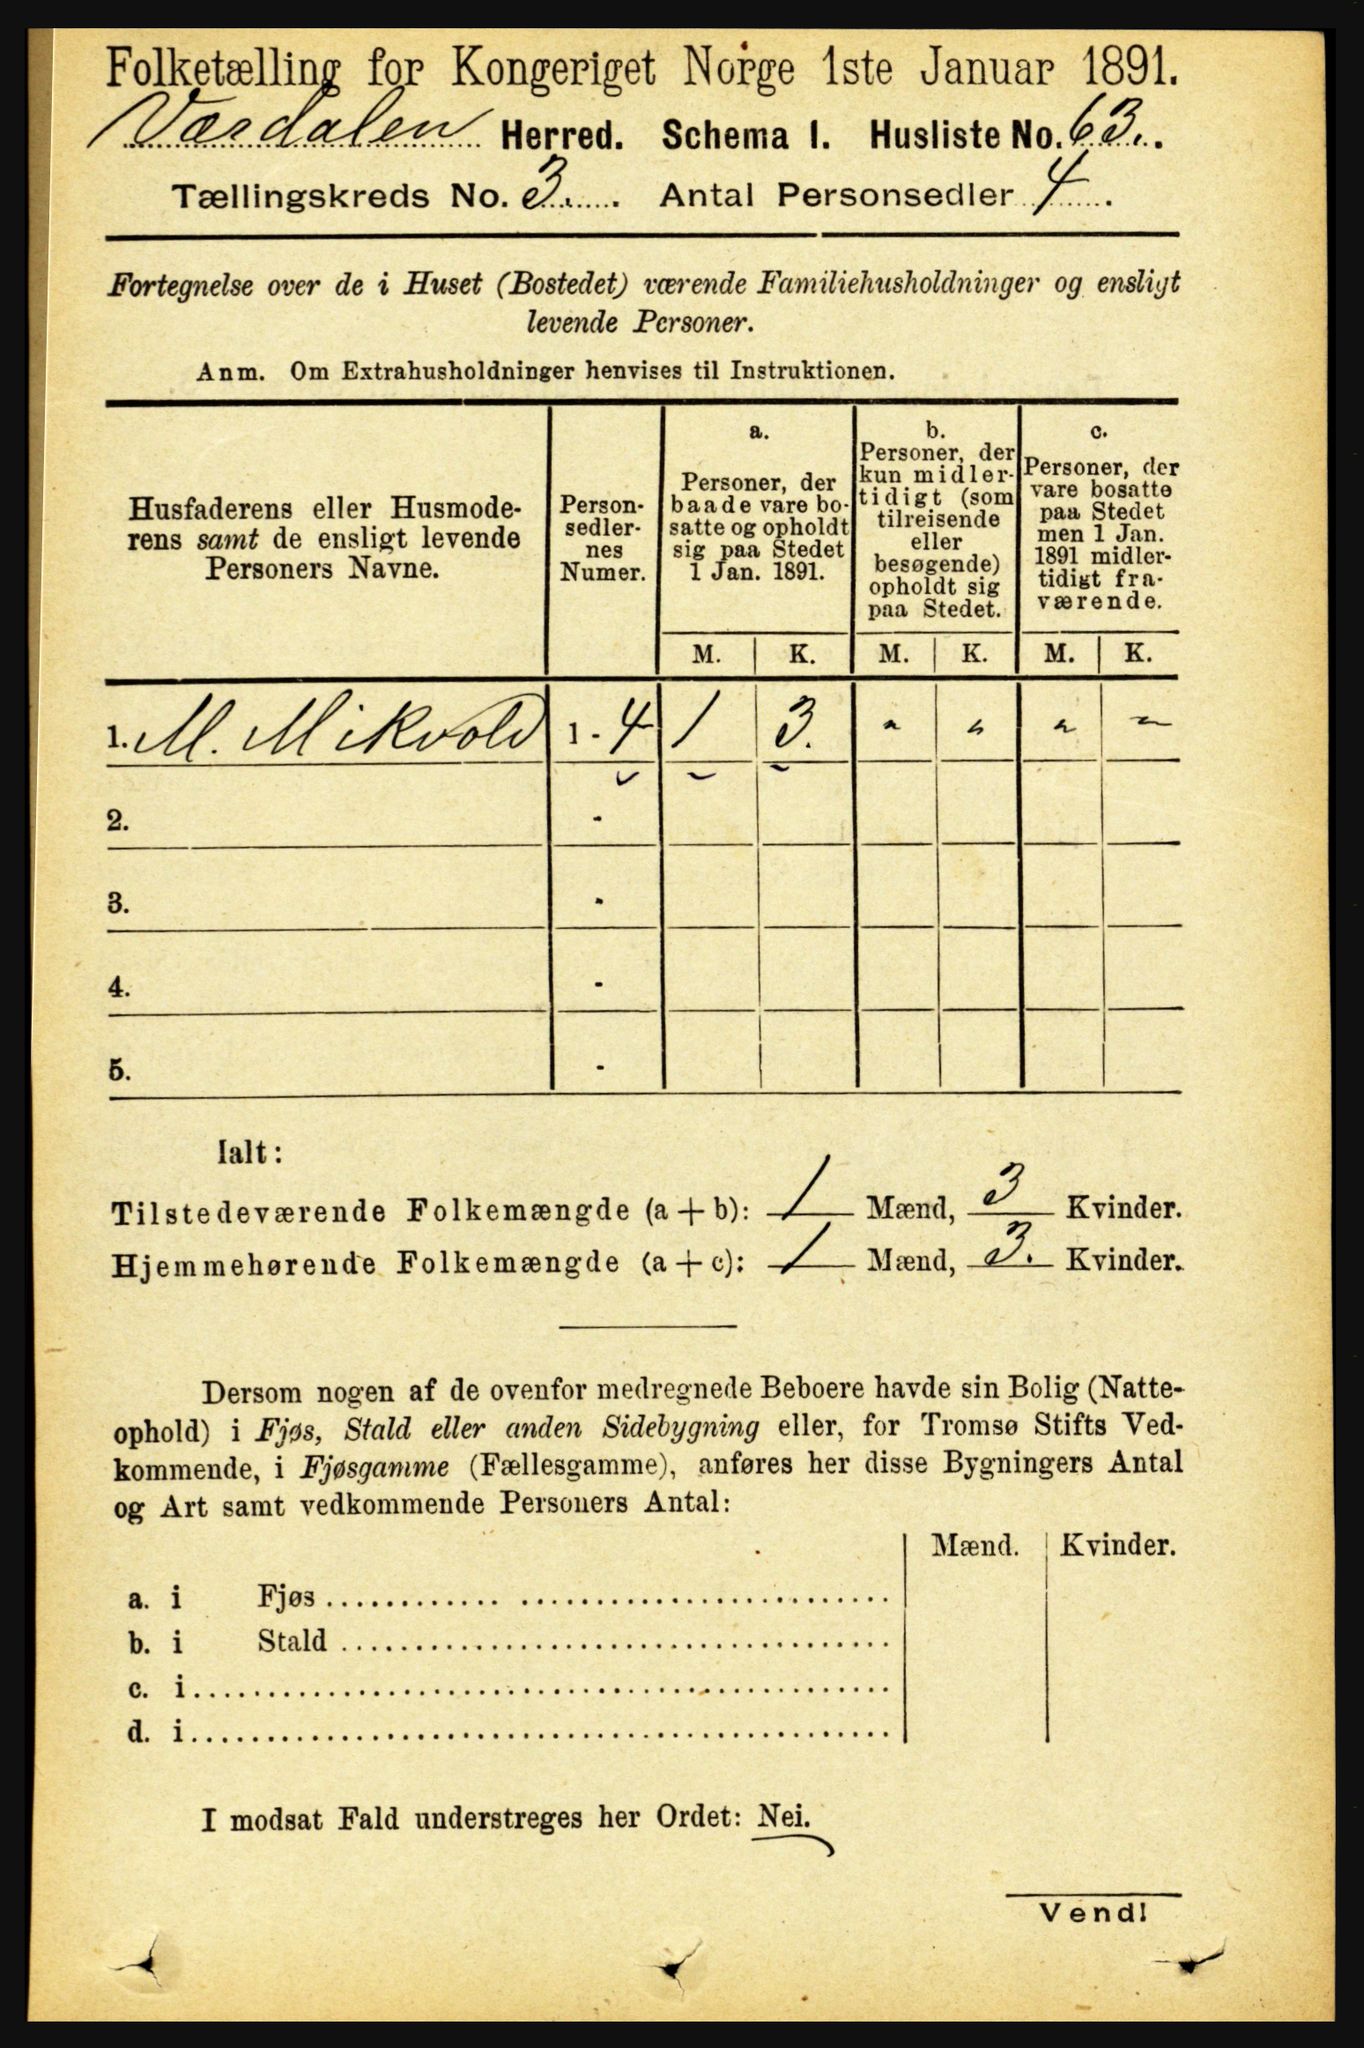 Folketælling for Kongeriget Norge 1ste Januar 1891.
Værdalen Herred. Schema 1. Husliste No. 63.
Tællingskreds No. 3. Antal Personsedler 4.
Fortegnelse over de i Huset (Bostedet) værende Familiehusholdninger og ensligt
levende Personer.
Anm. Om Extrahusholdninger henvises til Instruktionen.
Husfaderens eller Husmode-
rens samt de ensligt levende
Personers Navne.
Person-
sedler-
nes
Numer.
a.
Personer, der
baade vare bo-
satte og opholdt
sig paa Stedet
1 Jan. 1891.
b.
Personer, der
kun midler-
tidigt (som
tilreisende
eller
besøgende)
opholdt sig
paa Stedet.
c.
Personer, der
vare bosatte
paa Stedet
men 1 Jan.
1891 midler-
tidigt fra-
værende.
M. K. M. K. M. K.
1. M. Mikvold 1 - 4 1 3. " " " "
2. -
3. -
4. -
5. -
Ialt:
Tilstedeværende Folkemængde (a + b): 1 Mænd, 3 Kvinder.
Hjemmehørende Folkemængde (a + c): 1 Mænd, 3. Kvinder.
Dersom nogen af de ovenfor medregnede Beboere havde sin Bolig (Natte-
ophold) i Fjøs, Stald eller anden Sidebygning eller, for Tromsø Stifts Ved-
kommende, i Fjøsgamme (Fællesgamme), anføres her disse Bygningers Antal
og Art samt vedkommende Personers Antal:
Mænd. Kvinder.
a. i Fjøs
b. i Stald
c. i
d. i
I modsat Fald understreges her Ordet: Nei.
Vend!